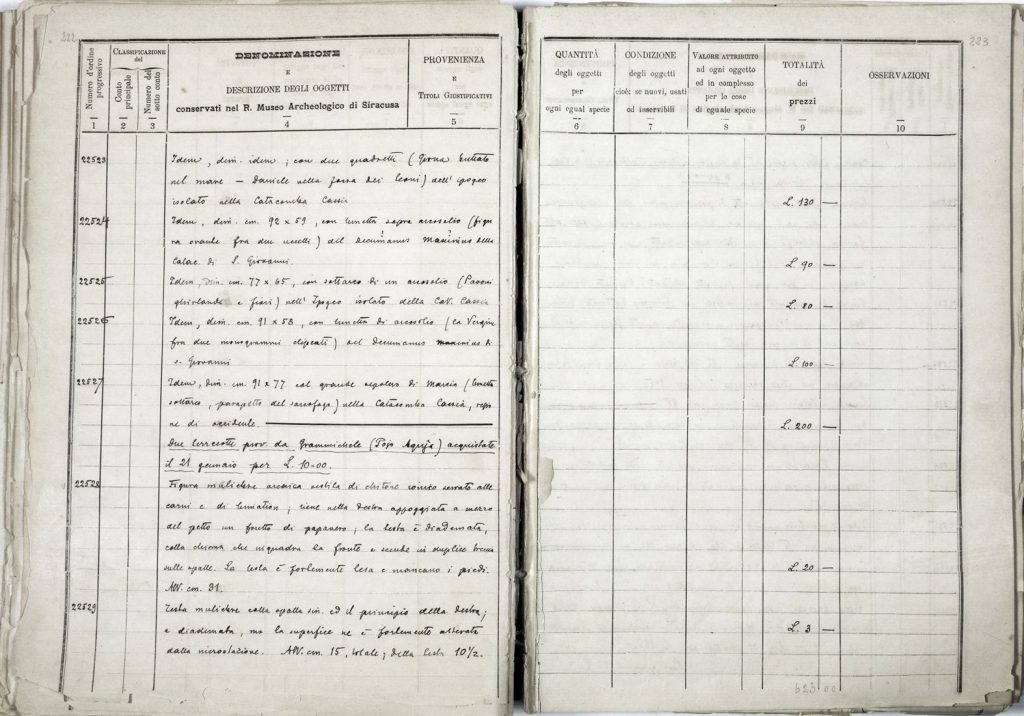 222
Numero d'ordine progressivo
CLASSIFICAZIONE del
Conto principale
Numero del sotto conto
DENOMINAZIONE
E
DESCRIZIONE DEGLI OGGETTI
conservati nel R. Museo Archeologico di Siracusa
PROVENIENZA
E
TITOLI GIUSTIFICATIVI
1 2 3 4 5
22523 Idem, dim. idem; con due quadretti (Giona buttato
nel mare — Daniele nella fossa dei leoni) dell'ipogeo
isolato nella Catacomba Cassia
22524 Idem, dim. cm. 92 x 59, con lunetta sopra arcosolio (figu
ra orante fra due uccelli) del decumanus maximus della
Catac. di S. Giovanni.
22525 Idem, dim. cm. 77 x 65, con sottarco di un arcosolio (Pavoni
ghirlande e fiori) nell'Ipogeo isolato della Cat. Cassia
22526 Idem, dim. cm. 91 x 58, con lunetta di arcosolio (la Vergine
fra due monogrammi clipeati) del Decumanus maximus di
S. Giovanni
22527 Idem, dim. cm. 91 x 77 col grande sepolcro di Marcia (lunetta
sottarco, parapetto del sarcofago) nella Catacomba Cassia, regio
ne di occidente.
Due terrecotte prov. da Grammichele (Pojo Aquja) acquistate
il 21 gennaio per L. 10-00.
22528 Figura muliebre arcaica vestita di chitone ionico serrato alle
carni e di himation; tiene nella destra appoggiata a mezzo
del petto un frutto di papavero; la testa è diademata,
colla chioma che inquadra la fronte e scende in duplice treccia
sulle spalle. La testa è fortemente lesa e mancano i piedi.
Alt. cm. 31.
22529 Testa muliebre colla spalla sin. ed il principio della destra;
è diademata, ma la superfice ne è fortemente alterata
dalla incrostazione. Alt. cm. 15, totale; della testa 10½.
223
QUANTITÀ
degli oggetti
per
ogni egual specie
CONDIZIONE
degli oggetti
cioè: se nuovi, usati
od inservibili
VALORE ATTRIBUITO
ad ogni oggetto
ed in complesso
per le cose
di eguale specie
TOTALITÀ
dei
prezzi
OSSERVAZIONI
6 7 8 9 10
L. 130 —
L. 90 —
L. 80 —
L. 100 —
L. 200 —
L. 20 —
L. 3 —
623 00